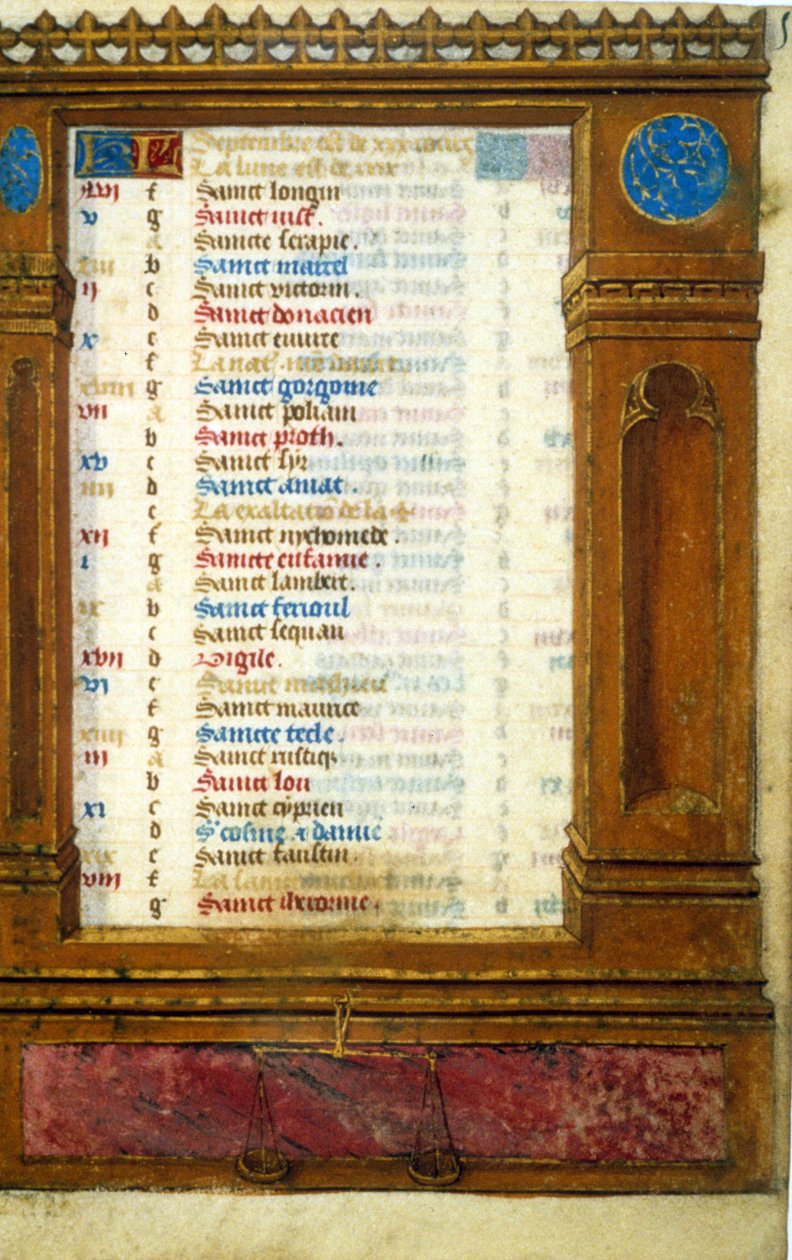 KL Septembre est de xxx iours
La lune est de xxix
xvi f Sainct longin
v g Sainct iust.
a Saincte serapie.
xiii b Sainct marcel
ii c Sainct victorin.
d Sainct donacien
x e Sainct euurte
f La nat. nre dame
xviii g Sainct gorgonie
vii a Sainct poliain
b Sainct proth.
xv c Sainct syr
iiii d Sainct amat.
e La exaltatiō de la +
xii f Sainct nychomede.
i g Saincte eufamie.
a Sainct lambert.
ix b Sainct ferioul
c Sainct sequan
xvii d Vigile.
vi e Sainct mathieu
f Sainct maurice
xiiii g Saincte tecle.
iii a Sainct rustiq
b Sainct lou
xi c Sainct cyprien
d S cosme & damie
xix e Sainct faustin.
viii f La sainct
g Sainct iherome.